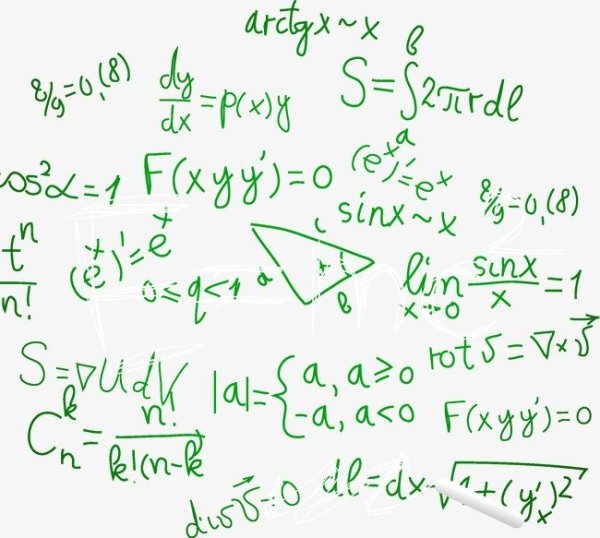 arctgx~x
8/9=0,(8)
dy/dx=p(x)y
S=∫2πrdl
b
a
cos²α=1
F(xyy')=0
(eˣ)'=eˣ
sinx~x
8/9=0,(8)
tⁿ/n!
(eˣ)'=eˣ
0≤q<1
a
c
b
lim x→0 sinx/x=1
S=∇UdV
|a|={a, a≥0
-a, a<0
rot v=∇×v⃗
Cₙᵏ=n!/k!(n-k
F(xyy')=0
v⃗=0
dl=dx√1+(y'ₓ)²